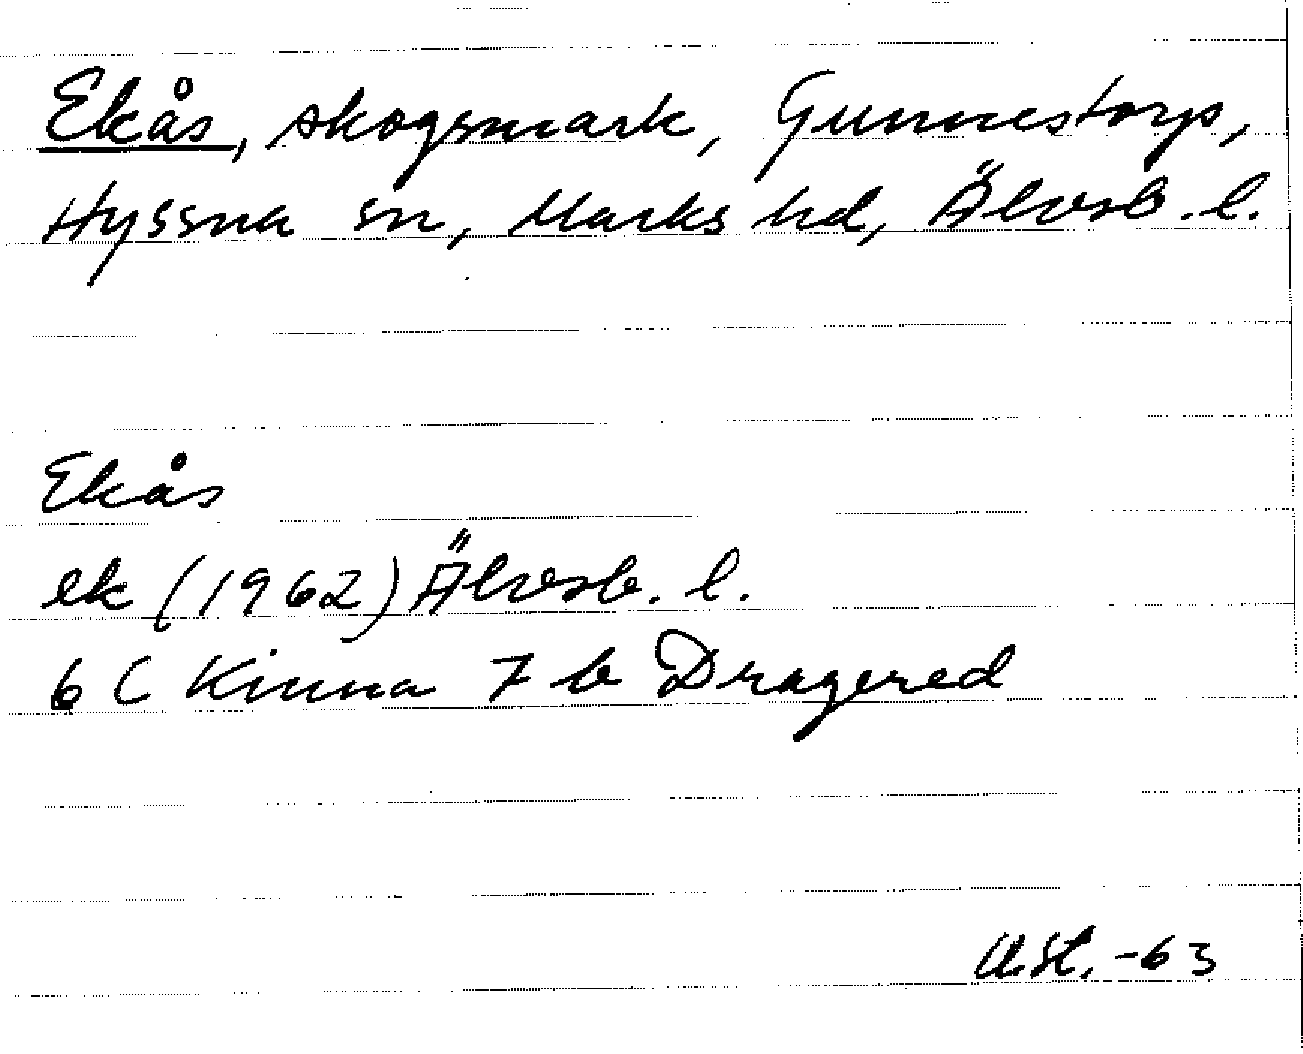 Ekås, skogsmark, Gunnestorp,
Hyssna sn, Marks hd, Älvsb. l.
Ekås
ek (1962) Älvsb. l.
6 C Kinna 7 b Dragered
-63